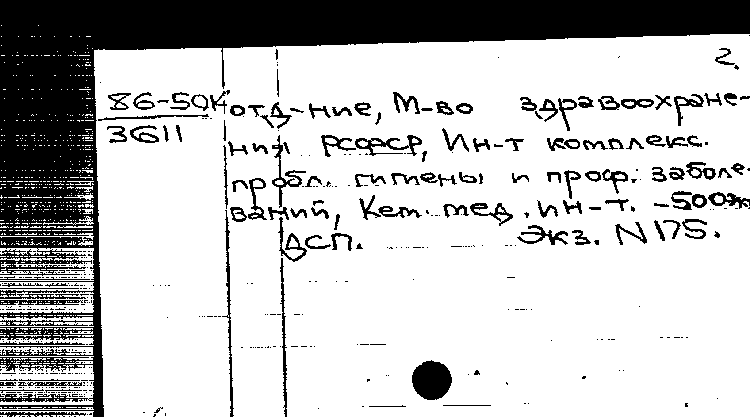 2.
86-50к отд-ние, М-во здравоохране-
3611 ния РСФСР, Ин-т комплекс.
пробл. гигиены и проф. заболе-
ваний, Кем. мед. ин-т. -500эк
ДСП. Экз. N 175.